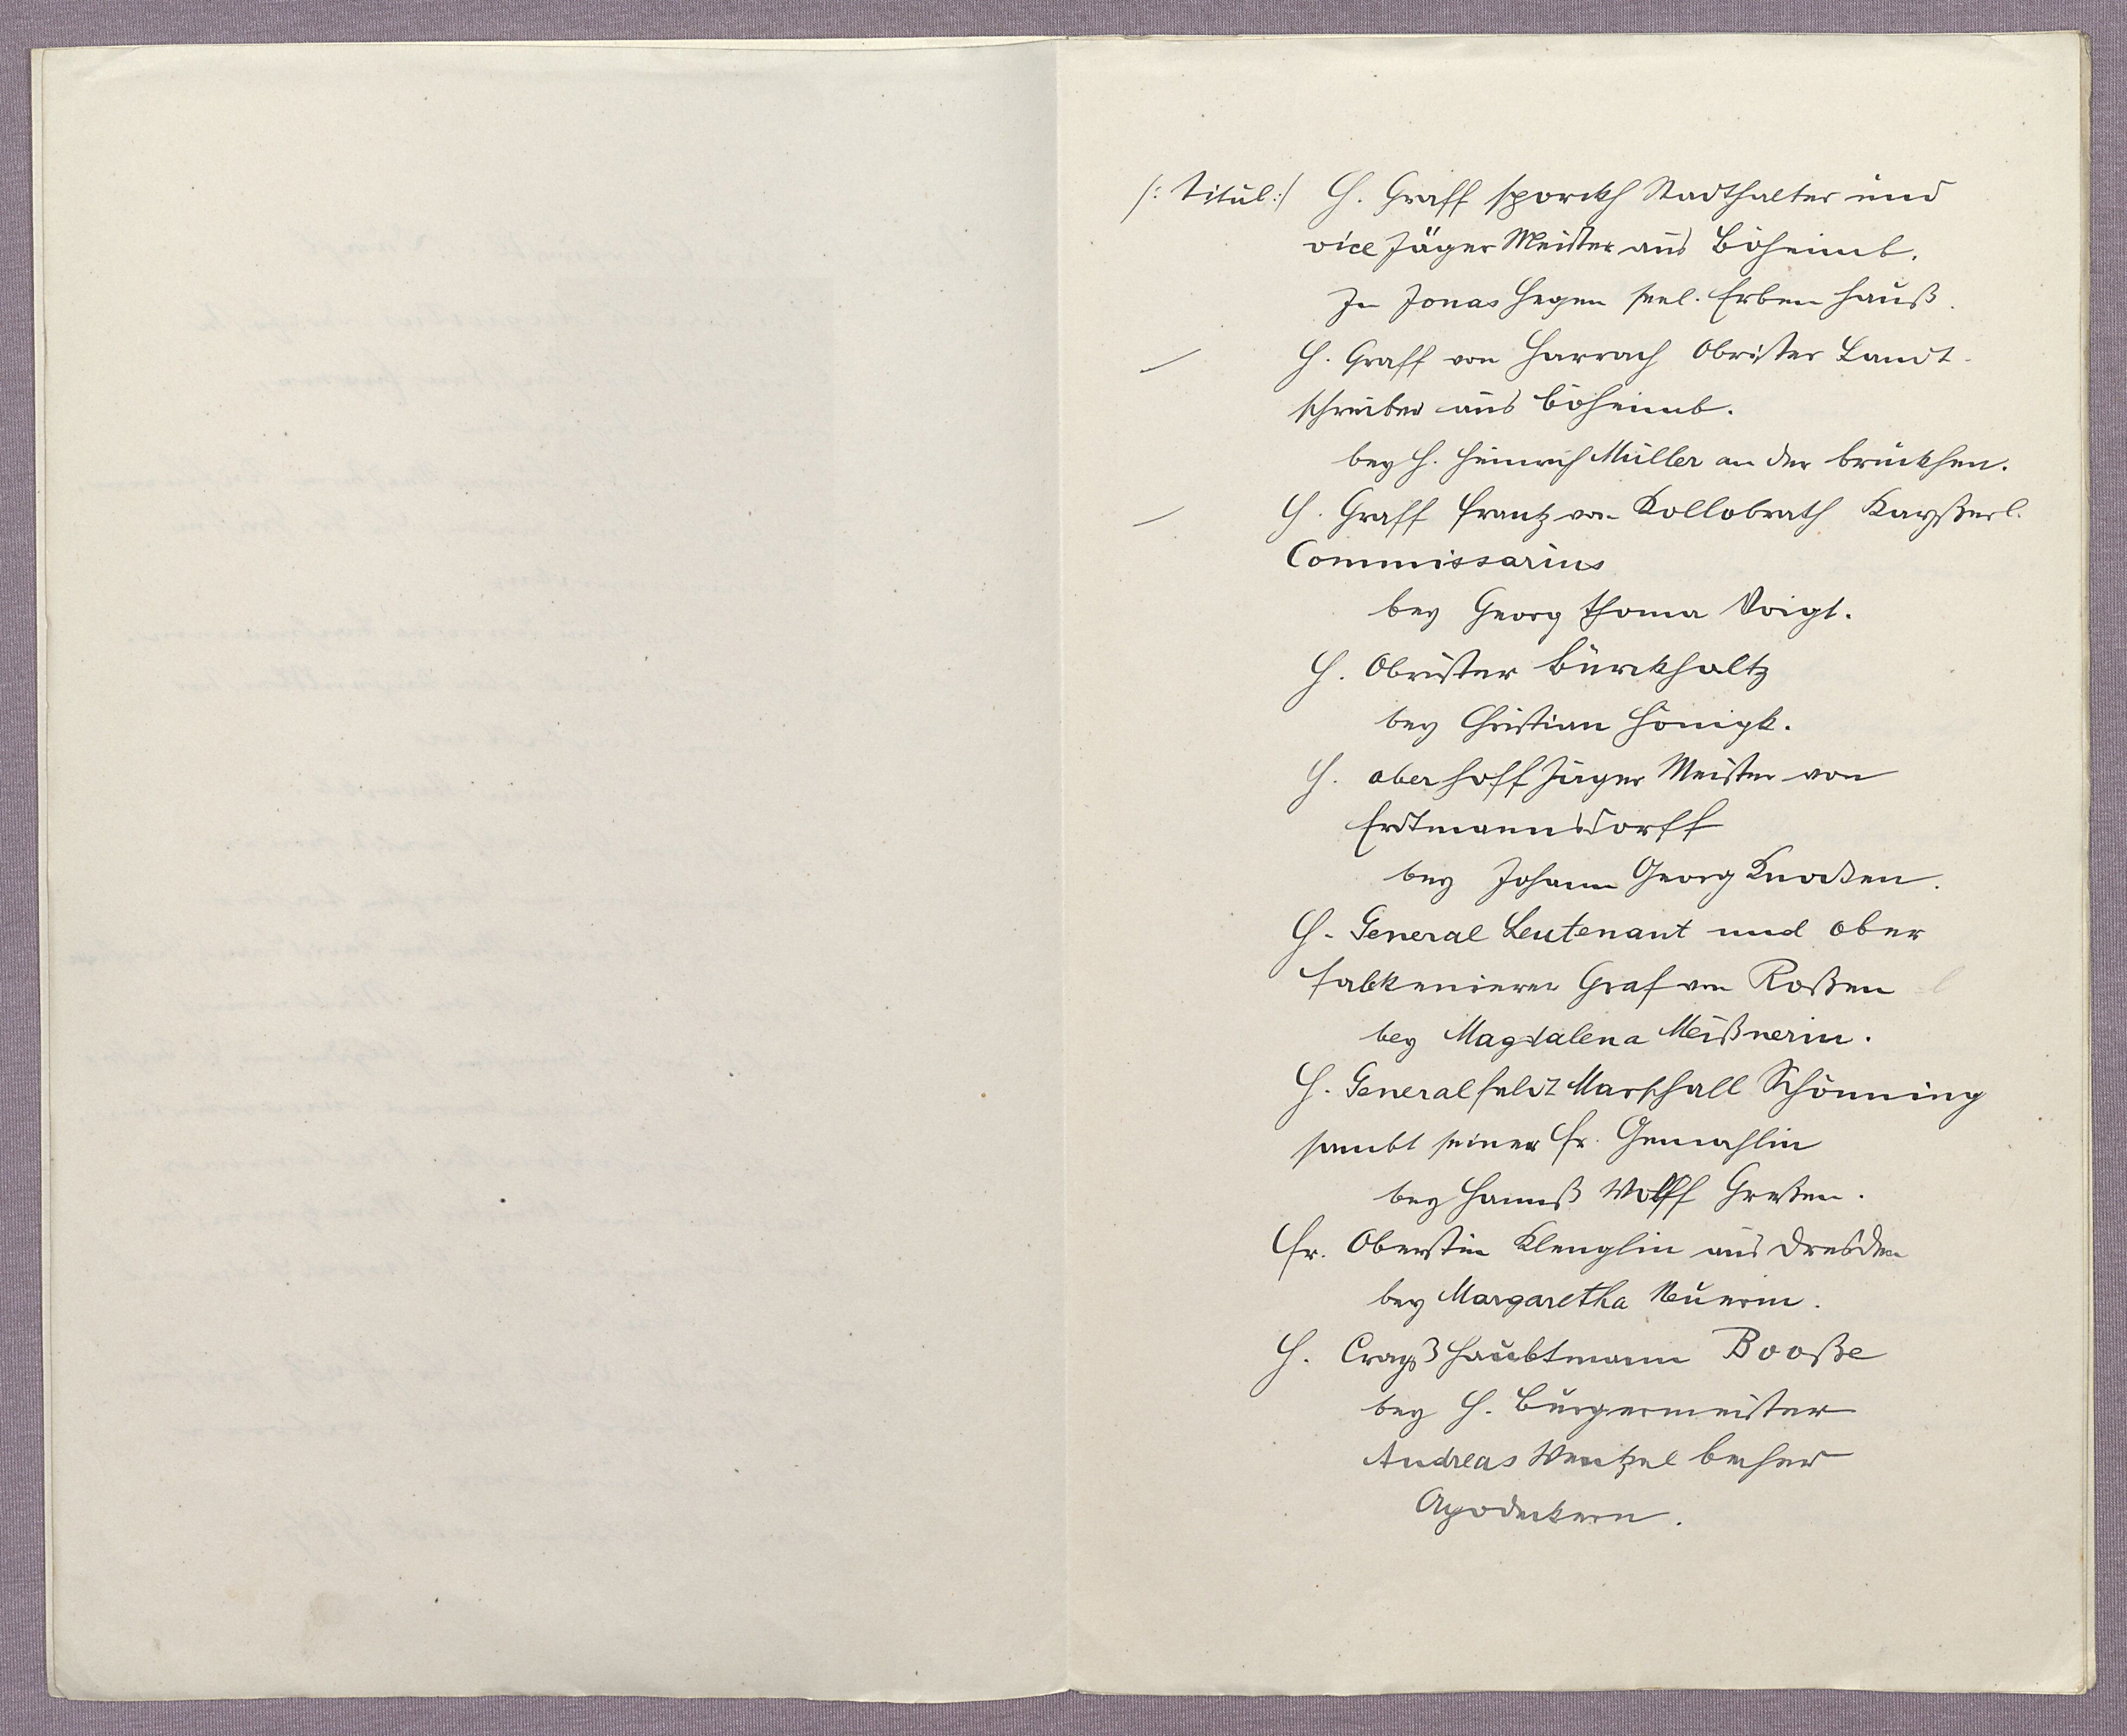 /: Titul :/ H. Graff sporckh Stadthalter und
vice Jäger Meister aus Böheimb.
In Jonas Hegen seel. Erben Hauß.
H. Graff von Harrach Obrister Landt-
schreiber aus Böheimb.
bey H. Heinrich Müller an der brückhen.
H. Graff Frantz von Kollobrath Kayßerl.
Commissarius
bey Georg Thoma Voigt.
H. Obrister Burckholtz
bey Christian Hönigk.
H. ober Hoff Jäger Meister von
Erdtmannsdorff
bey Johann Georg
H. General Leutenant und ober
falkenierer Graf von Roßen
bey Magdalena Meißnerin.
H. General feldt Marschall Schönning
sambt seiner Fr. Gemahlin
bey Hannß Wolff
Fr. Oberstin Klenglin aus Dresden
bey Margaretha
H. Crayß Haubtmann Booße
bey H. Burgermeister
Andreas Wentzel becher
Apodeckern.